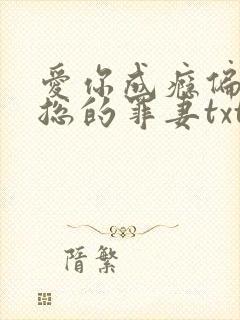 爱你成瘾偏
总的罪妻txt
隋繁